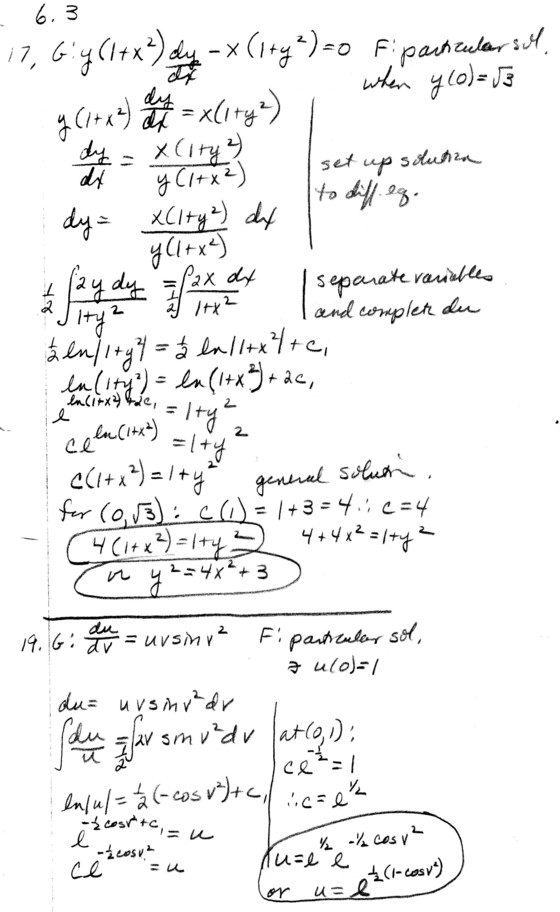 6.3
17, G: y(1+x²) dy/dx - x(1+y²)=0 F: particular sol.
when y(0)=√3
y(1+x²) dy/dx = x(1+y²)
dy/dx = x(1+y²) / y(1+x²)
set up solution
to diff. eq.
dy = x(1+y²) / y(1+x²) dx
1/2 ∫ 2y dy / 1+y² = 1/2 ∫ 2x dx / 1+x²
separate variables
and complete du
1/2 ln|1+y²| = 1/2 ln|1+x²| + c₁
ln(1+y²) = ln(1+x²) + 2c₁
e^ln(1+x²)+2c₁ = 1+y²
ce^ln(1+x²) = 1+y²
c(1+x²) = 1+y² general solution.
for (0,√3): c(1) = 1+3 = 4 ∴ c=4
4(1+x²)=1+y² 4+4x²=1+y²
or y²=4x²+3
19. G: du/dv = uv sin v² F: particular sol,
∋ u(0)=1
du = uv sin v² dv
∫ du/u = 1/2 ∫ 2v sin v² dv
ln|u| = 1/2 (-cos v²) + c₁
e^-1/2 cos v² + c₁ = u
ce^-1/2 cos v² = u
at (0,1):
ce^-1/2 = 1
∴ c = e^1/2
u = e^1/2 e^-1/2 cos v²
or u = e^1/2(1-cos v²)